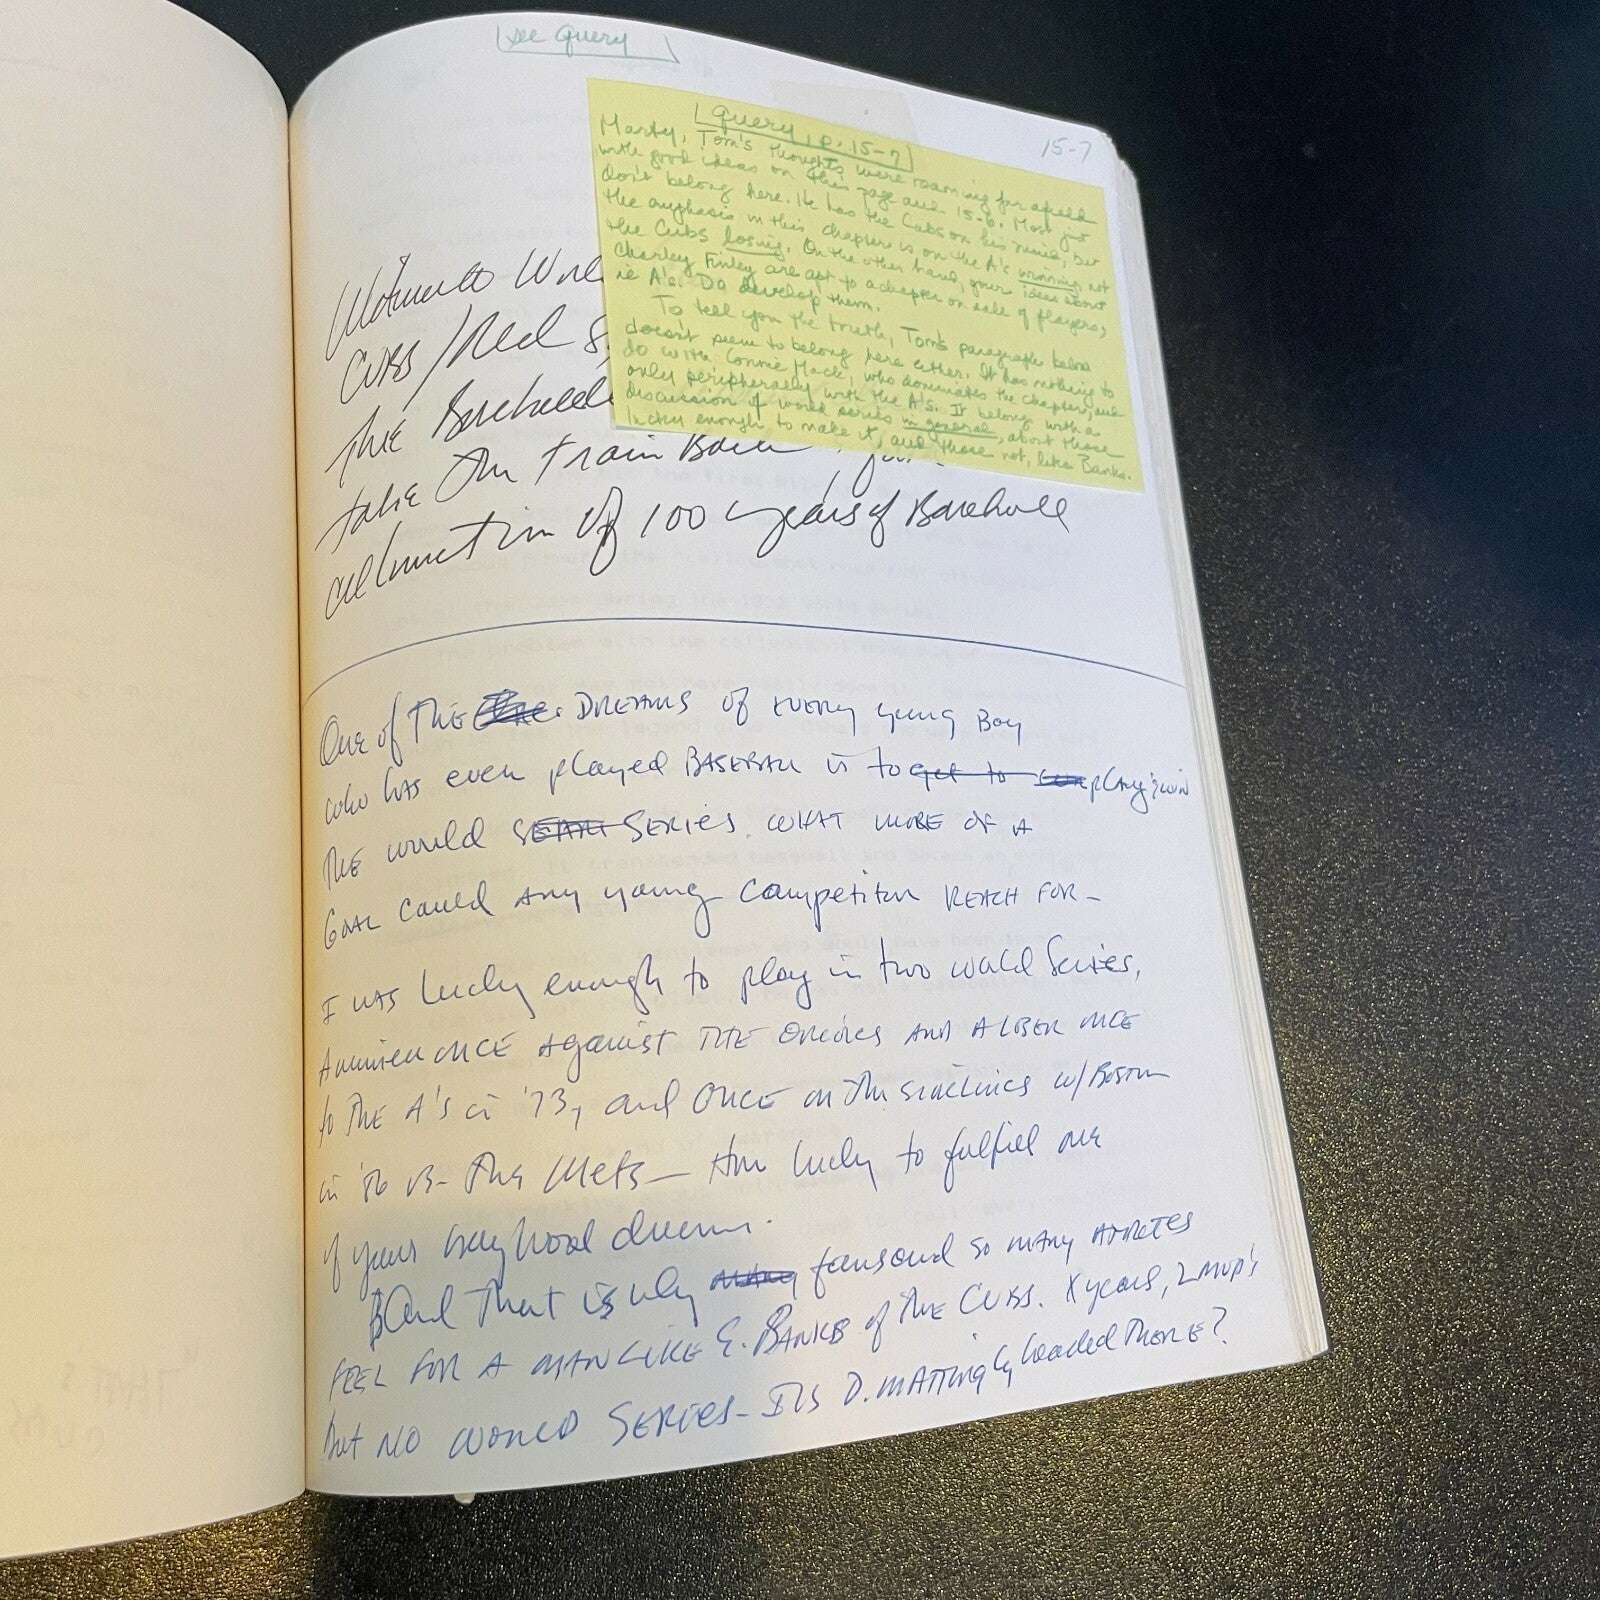 See Query
15-7
Query, p. 15-7
Marty, Tom's thoughts were roaming far afield
with good ideas on this page and 15-6. Most just
don't belong here. He has the Cubs on his mind, but
the emphasis in this chapter is on the A's winning, not
the Cubs losing. On the other hand, your ideas about
Charley Finley are apt to a chapter on sale of players,
ie A's. Do develop them.
To tell you the truth, Tom's paragraph below
doesn't seem to belong here either. It has nothing to
do with Connie Mack, who dominates the chapter, and
only peripherally with the A's. It belongs with a
discussion of world series in general, about those
lucky enough to make it, and those not, like Banks.
Ultimate
Cubs/Red S
the
take the train Back
culmination of 100 years of Baseball
One of the DREAMS of every young Boy
who has ever played BASEBALL is to get to play & win
the world SERIES. WHAT MORE OF A
GOAL could Any young competitor REACH FOR-
I was lucky enough to play in two world Series,
A winner ONCE Against THE Orioles AND A LOSER ONCE
to THE A's in '73, and ONCE on the sidelines w/ Boston
in '86 vs- The Mets- How lucky to fulfill one
of your boyhood dreams.
And that is why many fans and so many Athletes
FEEL FOR A MAN LIKE E. BANKS of the CUBS. X years, 2 MVP's
but NO WORLD SERIES- Is D. MATTingly headed THERE?